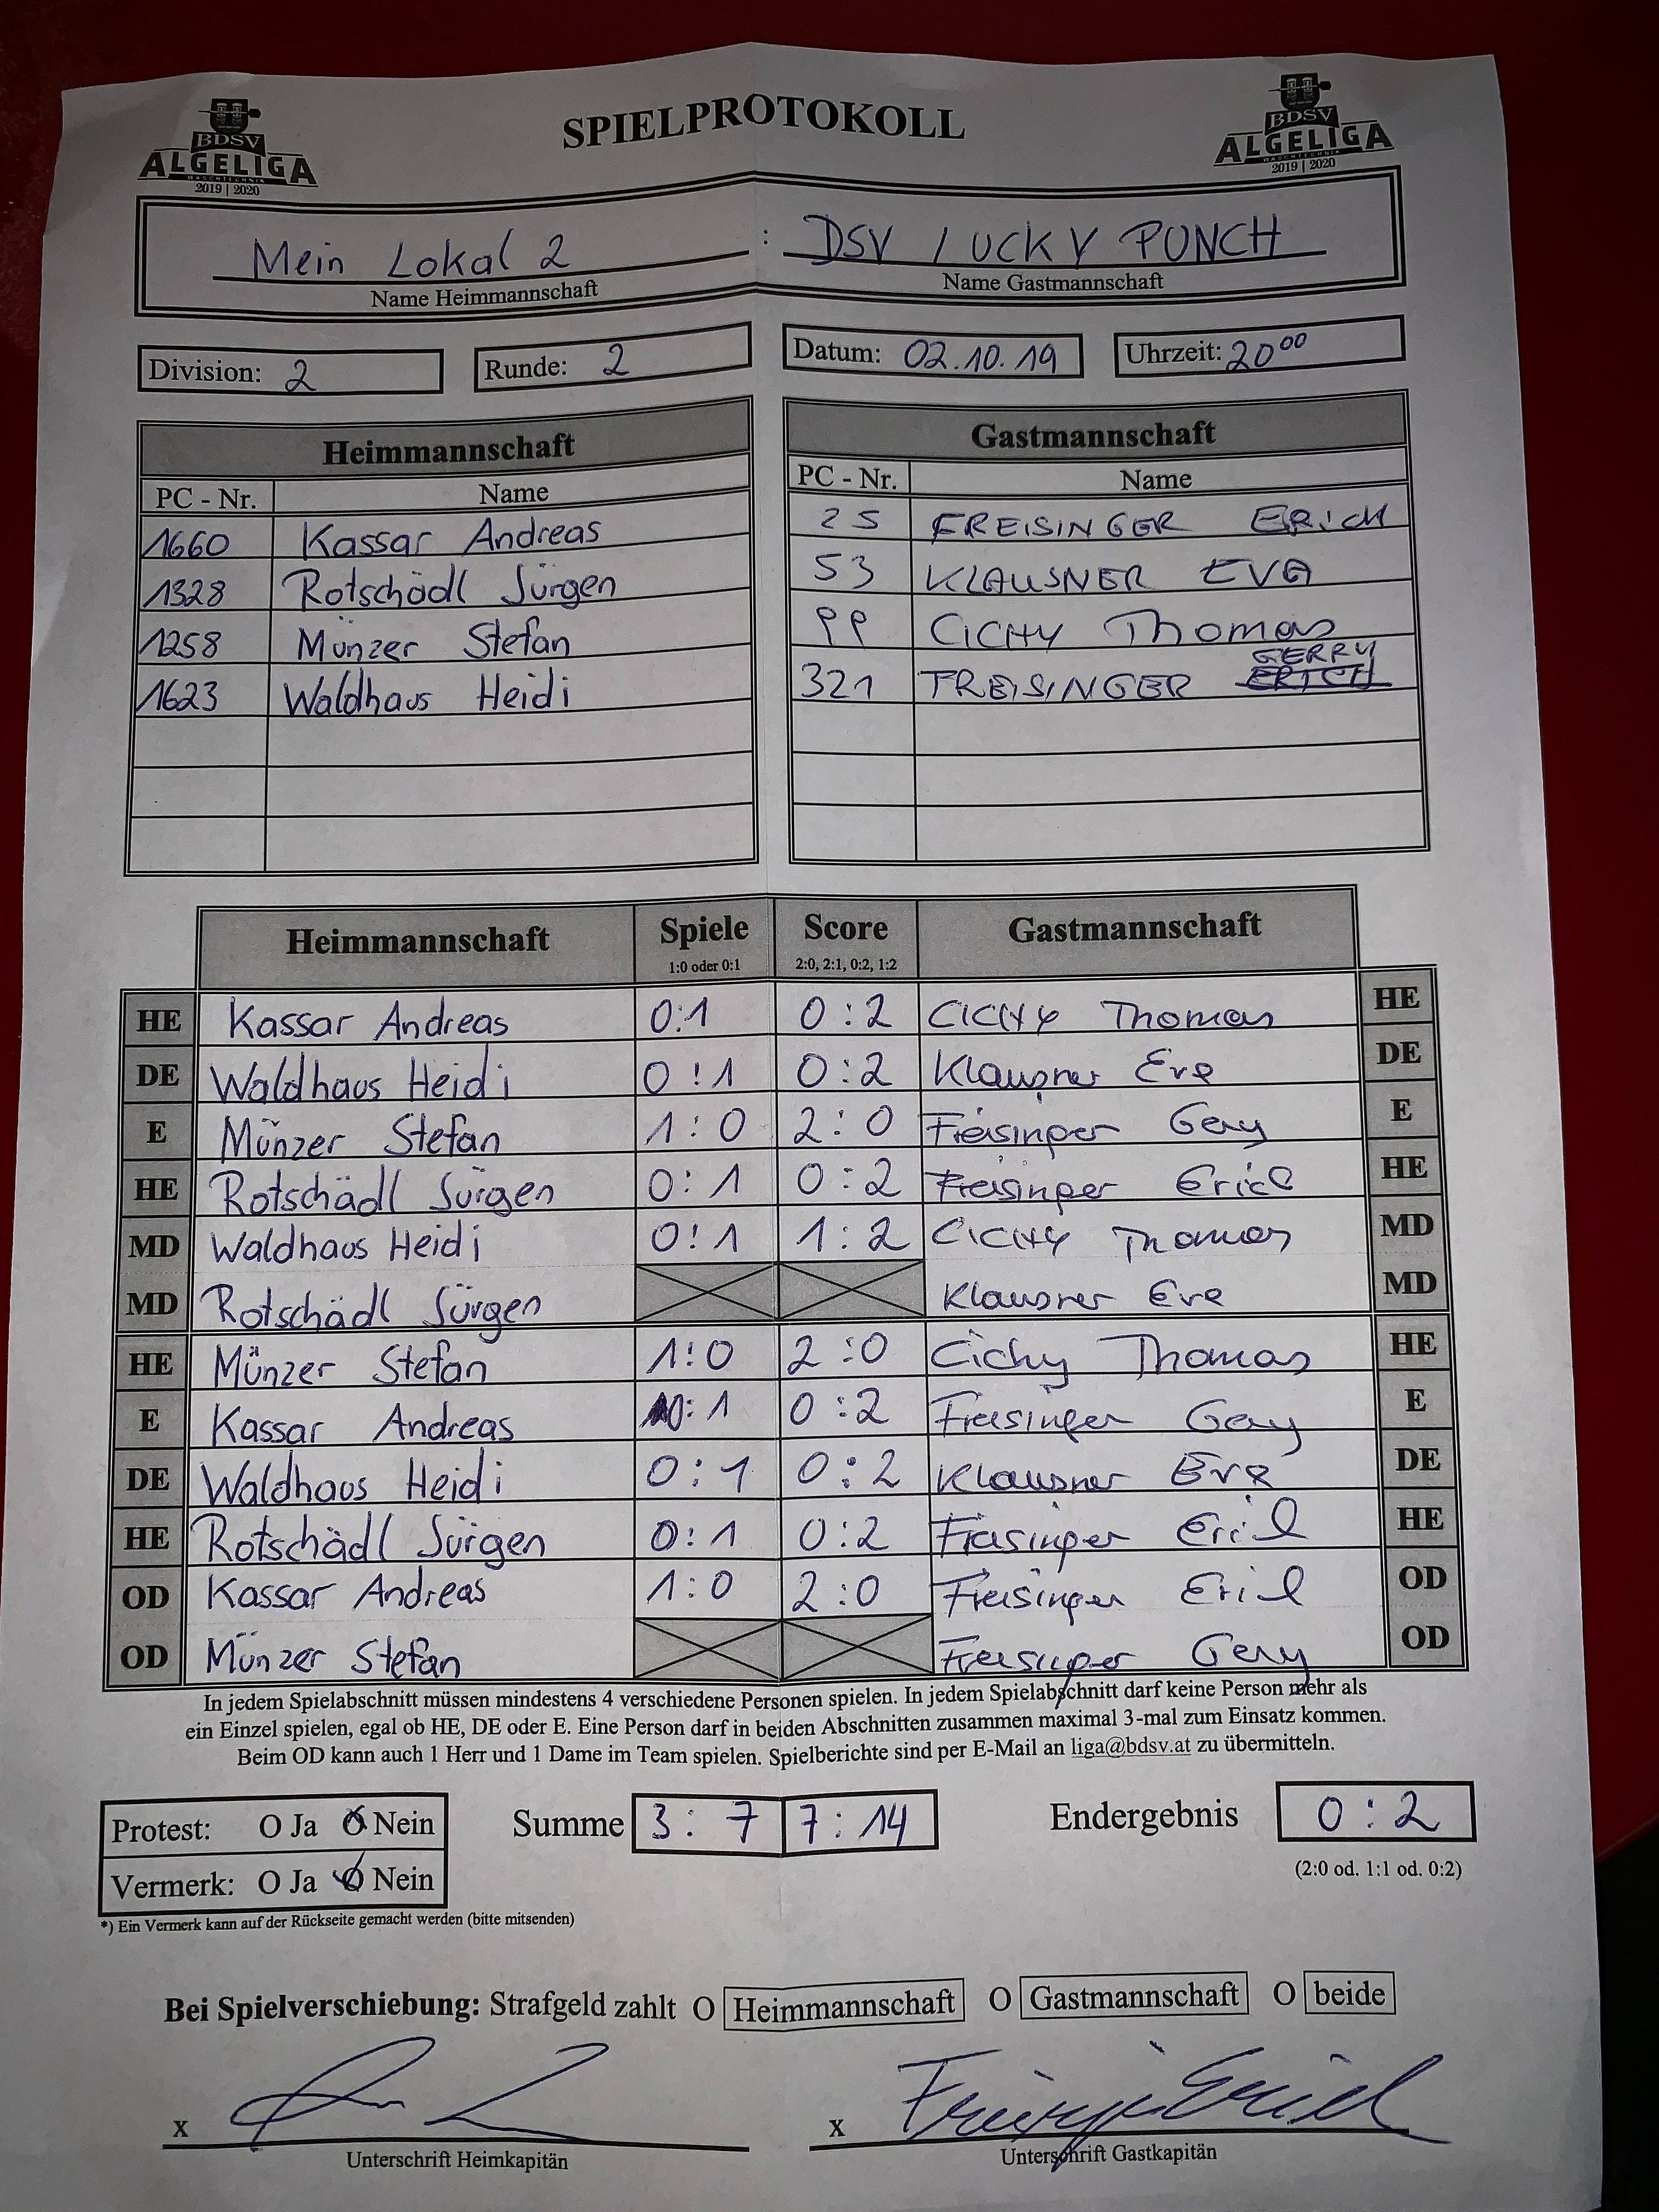 SPIELPROTOKOLL
BDSV
ALGELIGA
WASCHTECHNIK
2019 | 2020
BDSV
ALGELIGA
WASCHTECHNIK
2019 | 2020
Mein Lokal 2 : DSV LUCKY PUNCH
Name Heimmannschaft Name Gastmannschaft
Division: 2 Runde: 2 Datum: 02.10.19 Uhrzeit: 20⁰⁰
Heimmannschaft Gastmannschaft
PC - Nr. Name PC - Nr. Name
1660 Kassar Andreas 25 FREISINGER ERiCH
1328 Rotschädl Jürgen 53 KLAUSNER EVA
1258 Münzer Stefan 99 CICHY Thomas
GERRY
1623 Waldhaus Heidi 321 FREISINGER ERICH
Heimmannschaft Spiele Score Gastmannschaft
1:0 oder 0:1 2:0, 2:1, 0:2, 1:2
HE Kassar Andreas 0:1 0:2 CICHY Thomas HE
DE Waldhaus Heidi 0:1 0:2 Klausner Eva DE
E Münzer Stefan 1:0 2:0 Freisinger Gerry E
HE Rotschädl Jürgen 0:1 0:2 Freisinger Erich HE
MD Waldhaus Heidi 0:1 1:2 CICHY Thomas MD
MD Rotschädl Jürgen Klausner Eva MD
HE Münzer Stefan 1:0 2:0 Cichy Thomas HE
E Kassar Andreas 0:1 0:2 Freisinger Gerry E
DE Waldhaus Heidi 0:1 0:2 Klausner Eva DE
HE Rotschädl Jürgen 0:1 0:2 Freisinger Erich HE
OD Kassar Andreas 1:0 2:0 Freisinger Erich OD
OD Münzer Stefan Freisinger Gerry OD
In jedem Spielabschnitt müssen mindestens 4 verschiedene Personen spielen. In jedem Spielabschnitt darf keine Person mehr als
ein Einzel spielen, egal ob HE, DE oder E. Eine Person darf in beiden Abschnitten zusammen maximal 3-mal zum Einsatz kommen.
Beim OD kann auch 1 Herr und 1 Dame im Team spielen. Spielberichte sind per E-Mail an liga@bdsv.at zu übermitteln.
Protest: O Ja O Nein Summe 3:7 7:14 Endergebnis 0:2
Vermerk: O Ja O Nein (2:0 od. 1:1 od. 0:2)
*) Ein Vermerk kann auf der Rückseite gemacht werden (bitte mitsenden)
Bei Spielverschiebung: Strafgeld zahlt O Heimmannschaft O Gastmannschaft O beide
x x Freisinger Erich
Unterschrift Heimkapitän Unterschrift Gastkapitän